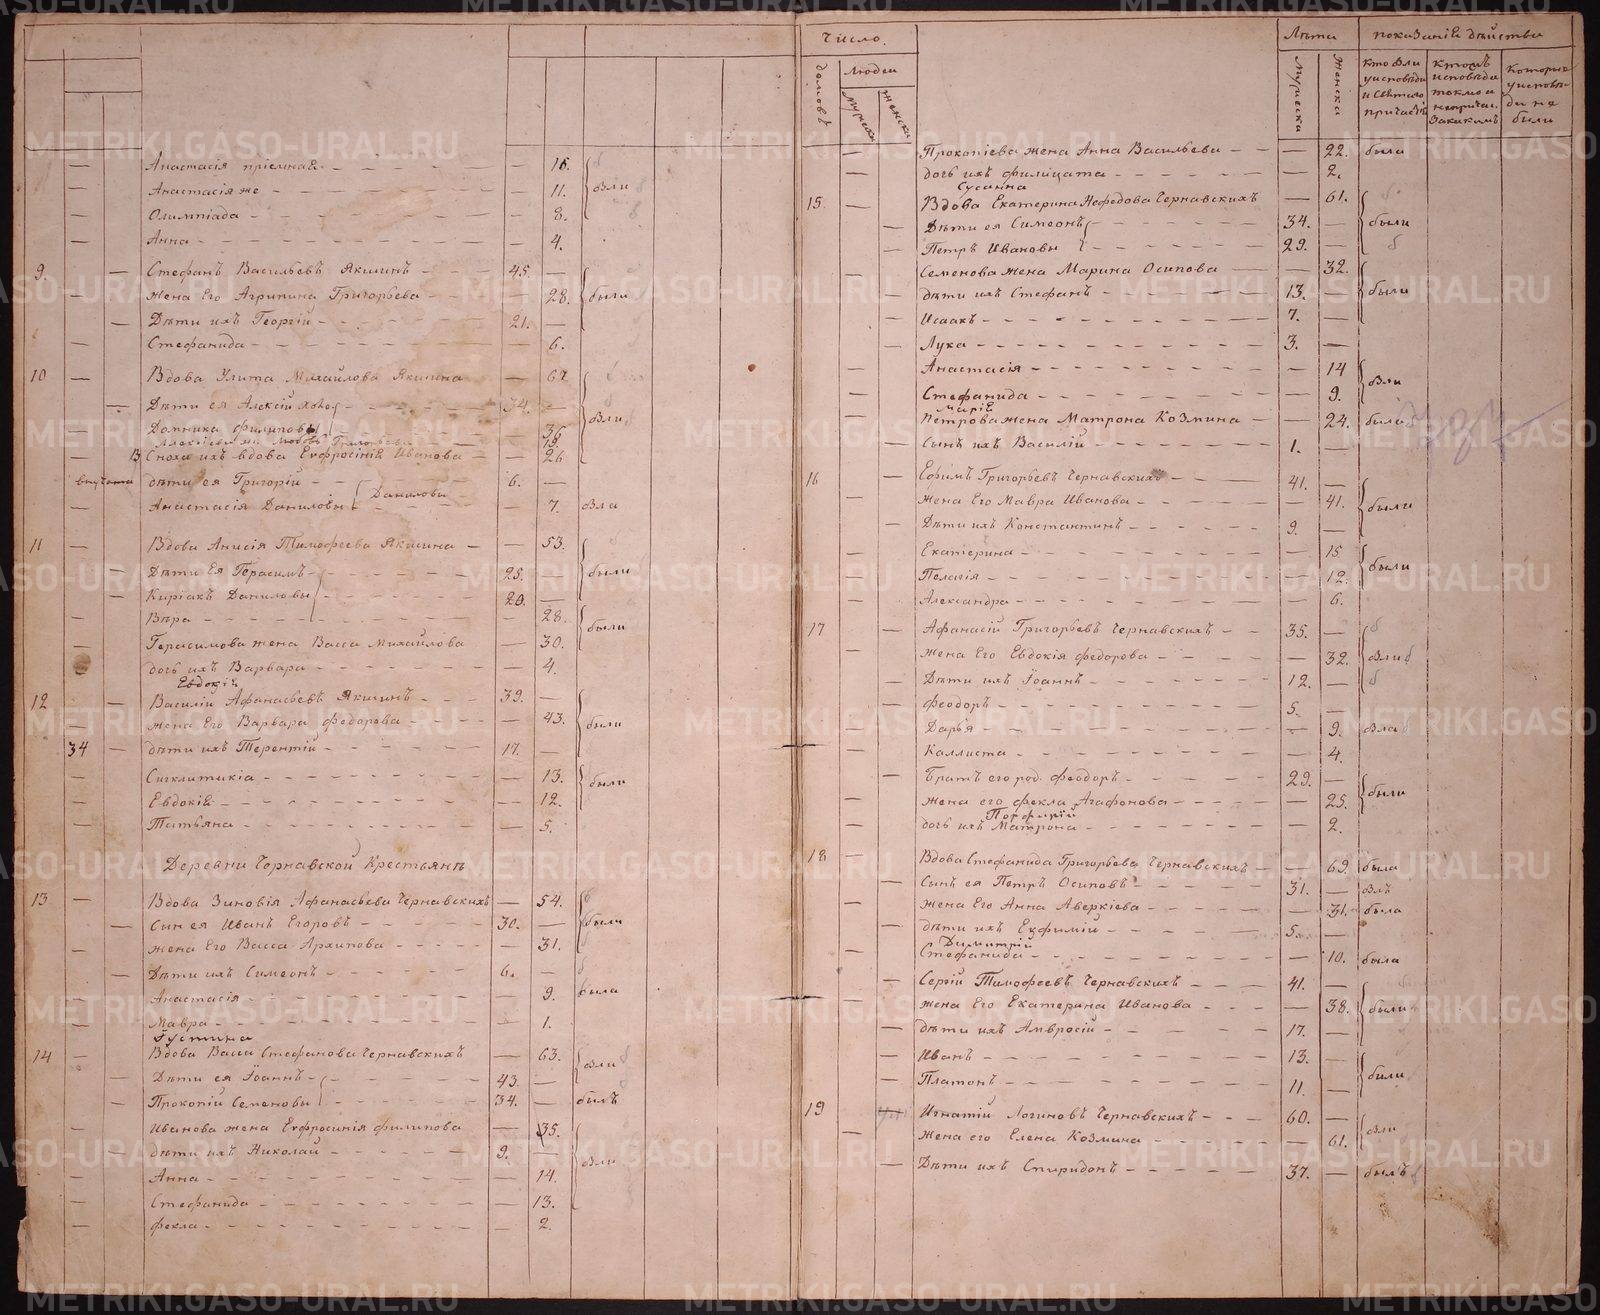 Анастасія пріемная 16.
Анастасія же 11. Вли
Олимпіада 8.
Анна 4.
9 Стефанъ Васильевъ Якшинъ 45.
жена Его Агрипина Григорьева 28. были
Дѣти ихъ Георгій 21.
Стефанида 6.
10 Вдова Улита Михайлова Якшина 67
Дѣти ея Алексій 34.
Домника Филиповы 36 Вли
Алексіева жена Любовь Григорьева 19.
13 Сноха ихъ вдова Евфросинія Иванова 26
дѣти ея Григорій 6. Даниловы
Анастасія Даниловы 7. Вла
11 Вдова Анисія Тимофеева Якшина 53.
Дѣти Ея Герасимъ 25. были
Киріакъ Даниловы 20.
Вѣра 28. были
Герасимова жена Васса Михайлова 30.
дочь ихъ Варвара 4.
Евдокія
12 Василій Афанасьевъ Якшинъ 39.
жена Его Варвара Федорова 43. были
34 дѣти ихъ Терентій 17.
Сигклитикіа 13. были
Евдокія 12.
Татьяна 5.
Деревни Чернавской Крестьянъ
13 Вдова Зиновія Афанасьева Чернавскихъ 54.
Сын ея Иванъ Егоровъ 30. были
жена Его Васса Архипова 31.
Дѣти ихъ Симеонъ 6.
Анастасія 9. была
Мавра 1.
Густина
14 Вдова Васса Стефанова Чернавскихъ 63. Вли
Дѣти ея Іоаннъ 43.
Прокопій Семеновы 34. былъ
Иванова жена Евфросинія Филипова 35.
дѣти ихъ Николай 9. Вли
Анна 14.
Стефанида 13.
Фекла 2.
Число Лѣта показаніе дѣйства
домовъ людей мужеска женска
мужеска женска
кто Вли у исповѣди и святаго причастія
Которые у исповѣди не были
Прокопіева жена Анна Васильева 22. была
дочь ихъ Филицата 2.
Сусанна
15. Вдова Екатерина Нефедова Чернавскихъ 61.
Дѣти ея Симеонъ 34. были
Петръ Ивановы 29.
Семенова жена Марина Осипова 32.
дѣти ихъ Стефанъ 13. были
Исаакъ 7.
Лука 3.
Анастасія 14 Вли
Стефанида 9.
Марія
Петрова жена Матрона Козмина 24. была
Сынъ ихъ Василій 1.
16 Ефимъ Григорьевъ Чернавскихъ 41.
жена Его Мавра Иванова 41. были
Дѣти ихъ Константинъ 9.
Екатерина 15 были
Пелагія 12.
Александра 6.
17 Афанасій Григорьевъ Чернавскихъ 35.
жена Его Евдокія Федорова 32. Вли
Дѣти ихъ Іоаннъ 12.
Феодоръ 5.
Дарья 9. Вла
Каллиста 4.
Братъ его род. Феодоръ 29. были
жена его Фекла Агафонова 25.
Порфирій
дочь ихъ Матрона 2.
18 Вдова Стефанида Григорьева Чернавскихъ 69. была
Сынъ ея Петръ Осиповъ 31. Влъ
жена Его Анна Аверкіева 31. была
дѣти ихъ Евфимій 5.
Димитрій
Стефанида 10. была
Сергій Тимофеевъ Чернавскихъ 41.
жена Его Екатерина Иванова 38. были
дѣти ихъ Амвросій 17.
Иванъ 13. были
Платонъ 11.
19 Игнатій Логиновъ Чернавскихъ 60. Вли
жена его Елена Козмина 61.
Дѣти ихъ Спиридонъ 37. былъ